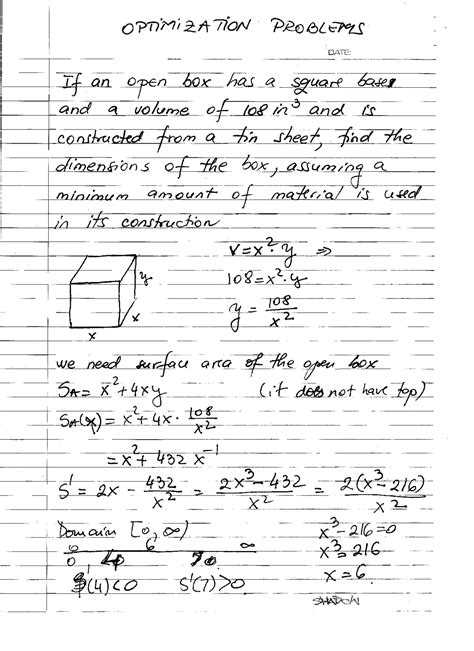 OPTIMIZATION PROBLEMS
DATE:
If an open box has a square bases
and a volume of 108 in³ and is
constructed from a tin sheet, find the
dimensions of the box, assuming a
minimum amount of material is used
in its construction
V = x²·y ⇒
108 = x²·y
y = 108/x²
y
x
x
we need surface area of the open box
SA = x² + 4xy (it does not have top)
SA(x) = x² + 4x · 108/x²
= x² + 432 x⁻¹
S' = 2x - 432/x² = (2x³-432)/x² = 2(x³-216)/x²
Domain [0, ∞) x³-216=0
6 ∞ x³=216
0 x=6
S'(4)<0 S'(7)>0
SHADOW